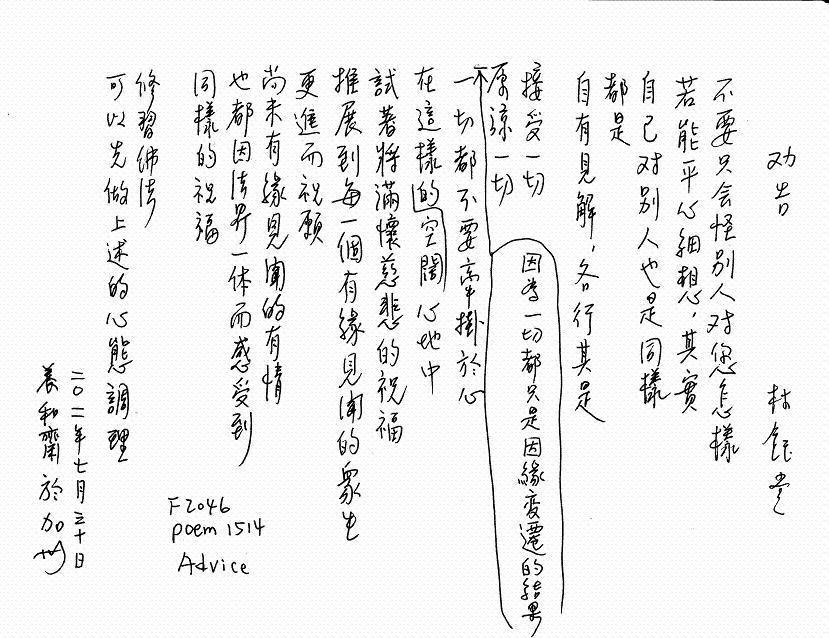 劝告
林鈺堂
不要只会怪别人对您怎樣
若能平心細想，其實
自己对别人也是同樣
都是
自有見解，各行其是
接受一切
因為一切都只是因緣变遷的結果
原諒一切
一切都不要牽掛於心
在這樣的空闊心地中
試著将滿懷慈悲的祝福
推展到每一個有緣見闻的衆生
更進而祝願
尚未有緣見闻的有情
也都因法界一体而感受到
同樣的祝福
修習佛法
可以先做上述的心態調理
二〇一一年七月三十日
養和齋於加州
F2046
poem 1514
Advice